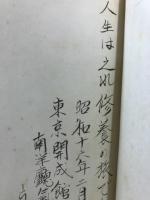 人生は之れ修養の旅で
昭和十六年二月
東京開成館
南洋庁